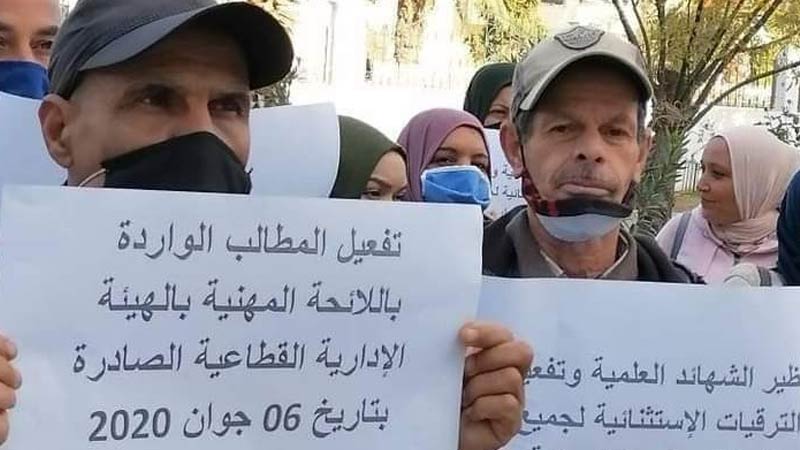 تفعيل المطالب الواردة
باللائحة المهنية بالهيئة
الإدارية القطاعية الصادرة
بتاريخ 06 جوان 2020
الشهائد العلمية
الترقيات الإستثنائية لجميع